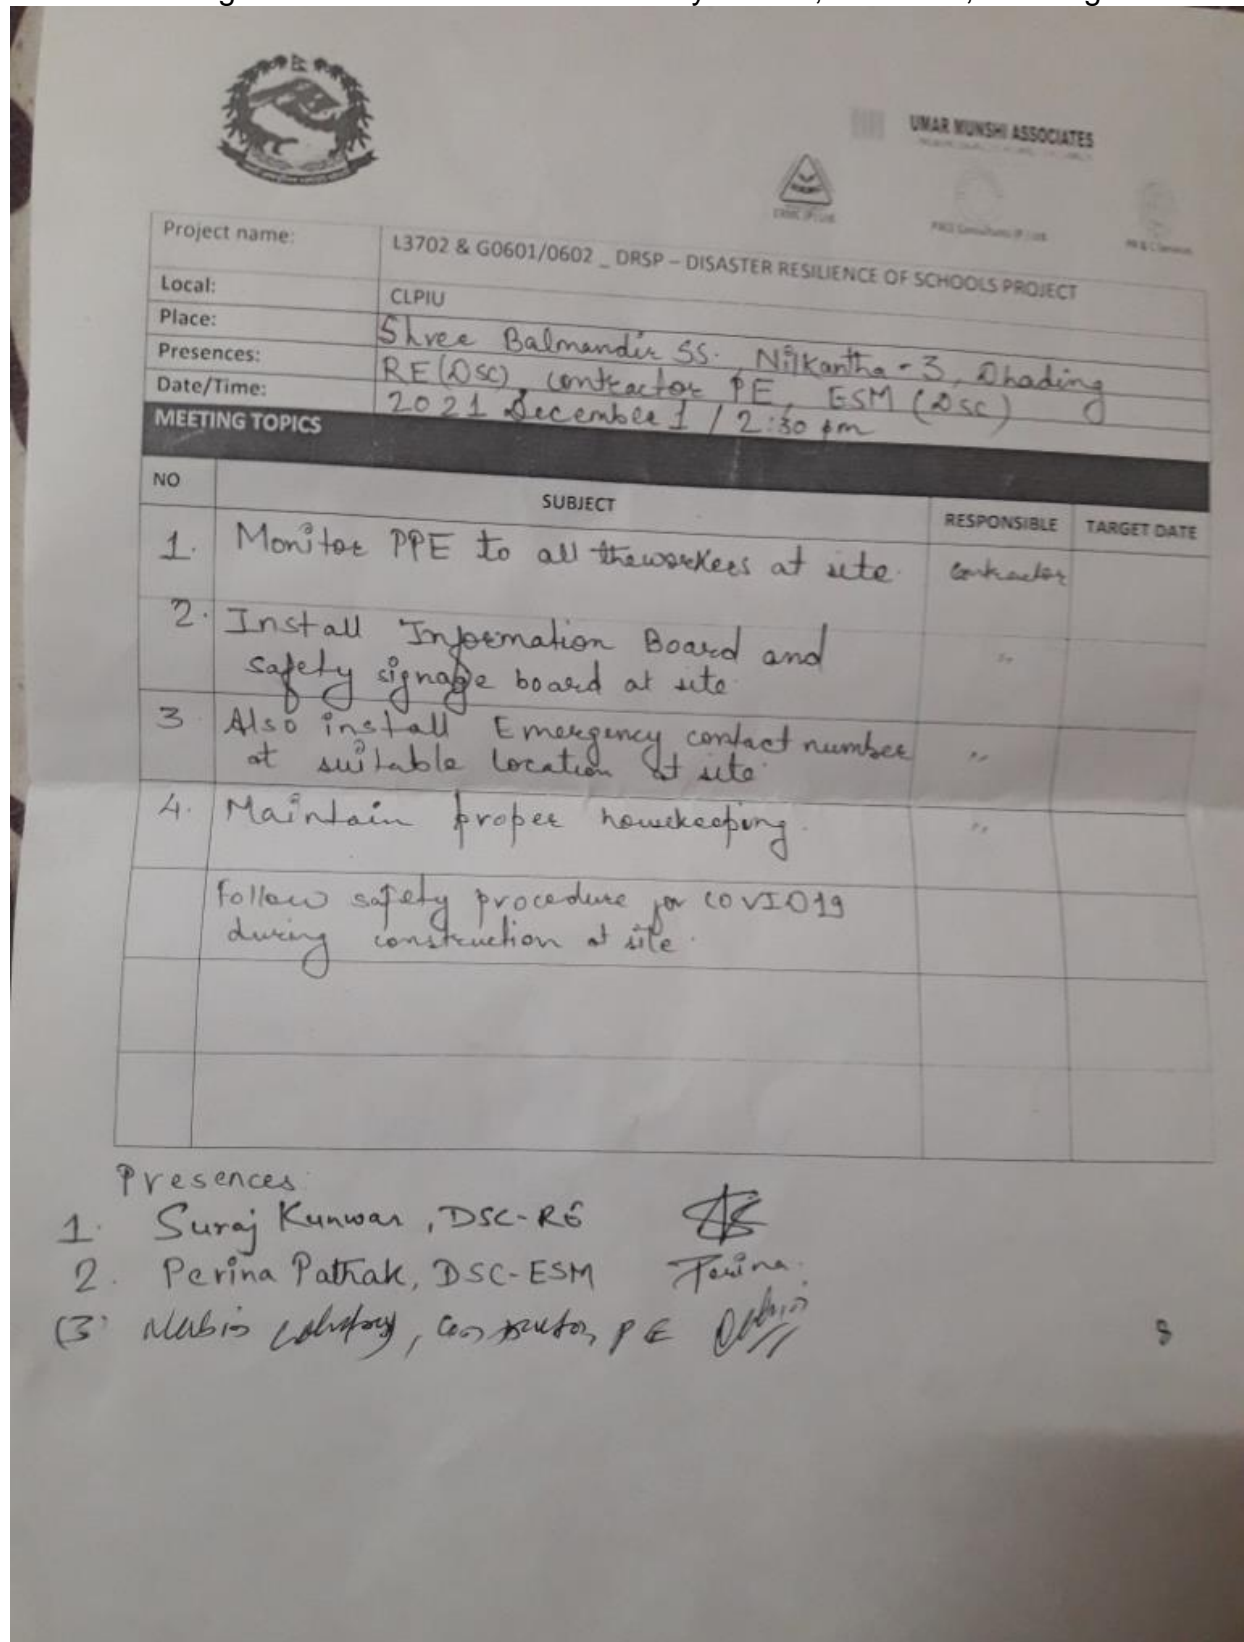 UMAR MUNSHI ASSOCIATES
Project name: L3702 & G0601/0602 _ DRSP – DISASTER RESILIENCE OF SCHOOLS PROJECT
Local: CLPIU
Place: Shree Balmandir SS. Nilkantha - 3, Dhading
Presences: RE(DSC), contractor PE, ESM (DSC)
Date/Time: 2021 December 1 / 2:30 pm
MEETING TOPICS
NO SUBJECT RESPONSIBLE TARGET DATE
1. Monitor PPE to all the workers at site. contractor
2. Install Information Board and
safety signage board at site "
3 Also install Emergency contact number
at suitable location at site "
4. Maintain proper housekeeping. "
Follow safety procedure for COVID19
during construction at site.
Presences
1. Suraj Kunwar, DSC-RE
2. Perina Pathak, DSC-ESM Perina
(3) PE
8